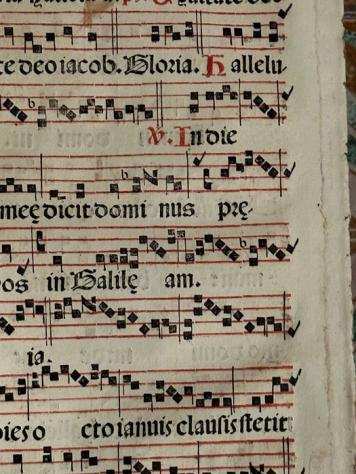 te deo iacob. Gloria. H allelu
V. In die
meę dicit domi nus prę
os in Galilę am.
ia.
dies o cto ianuis clausis stetit